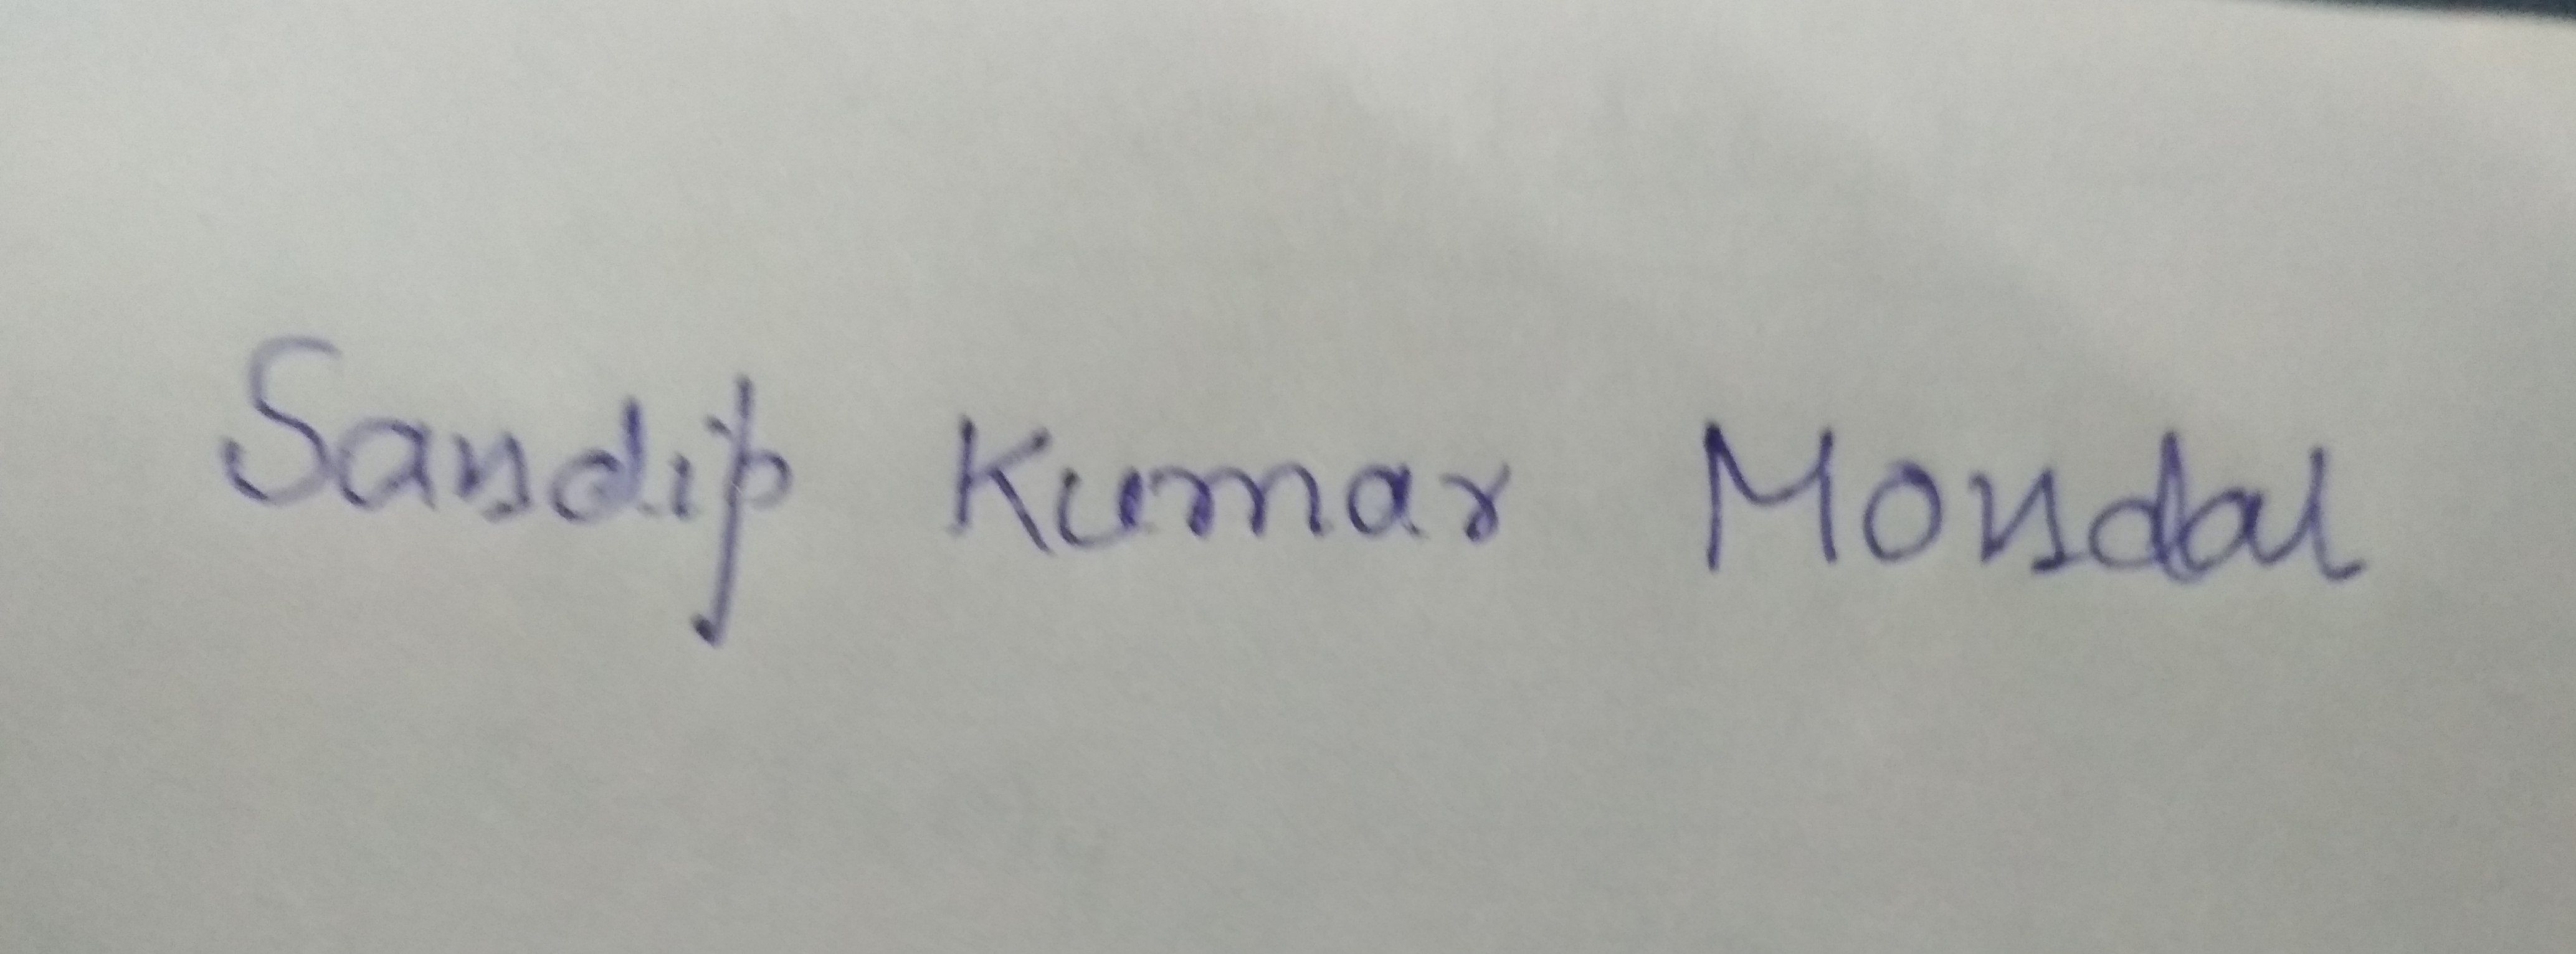 Sandip Kumar Mondal